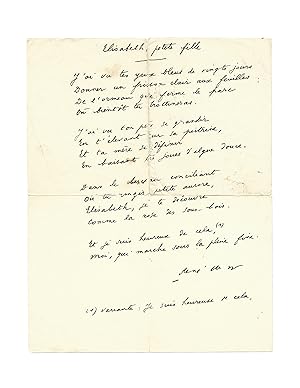 Elisabeth, petite fille
J'ai vu tes yeux bleus de vingt jours
Donner un frisson clair aux feuilles
De l'ormeau qui ferme le parc
Où bientôt tu trottineras.
J'ai vu ton peu se grandir
En t'élevant sur sa poitrine,
Et ta mère se
En baissant les joues d'algue douce.
Dans le berceau conciliant
Où tu nages petite aurore,
Elisabeth, je te découvre
Comme la rose des sous bois.
Et je suis heureux de cela, (1)
Moi, qui marche sous la pluie fine.
(1) variante : Je suis heureuse de cela,